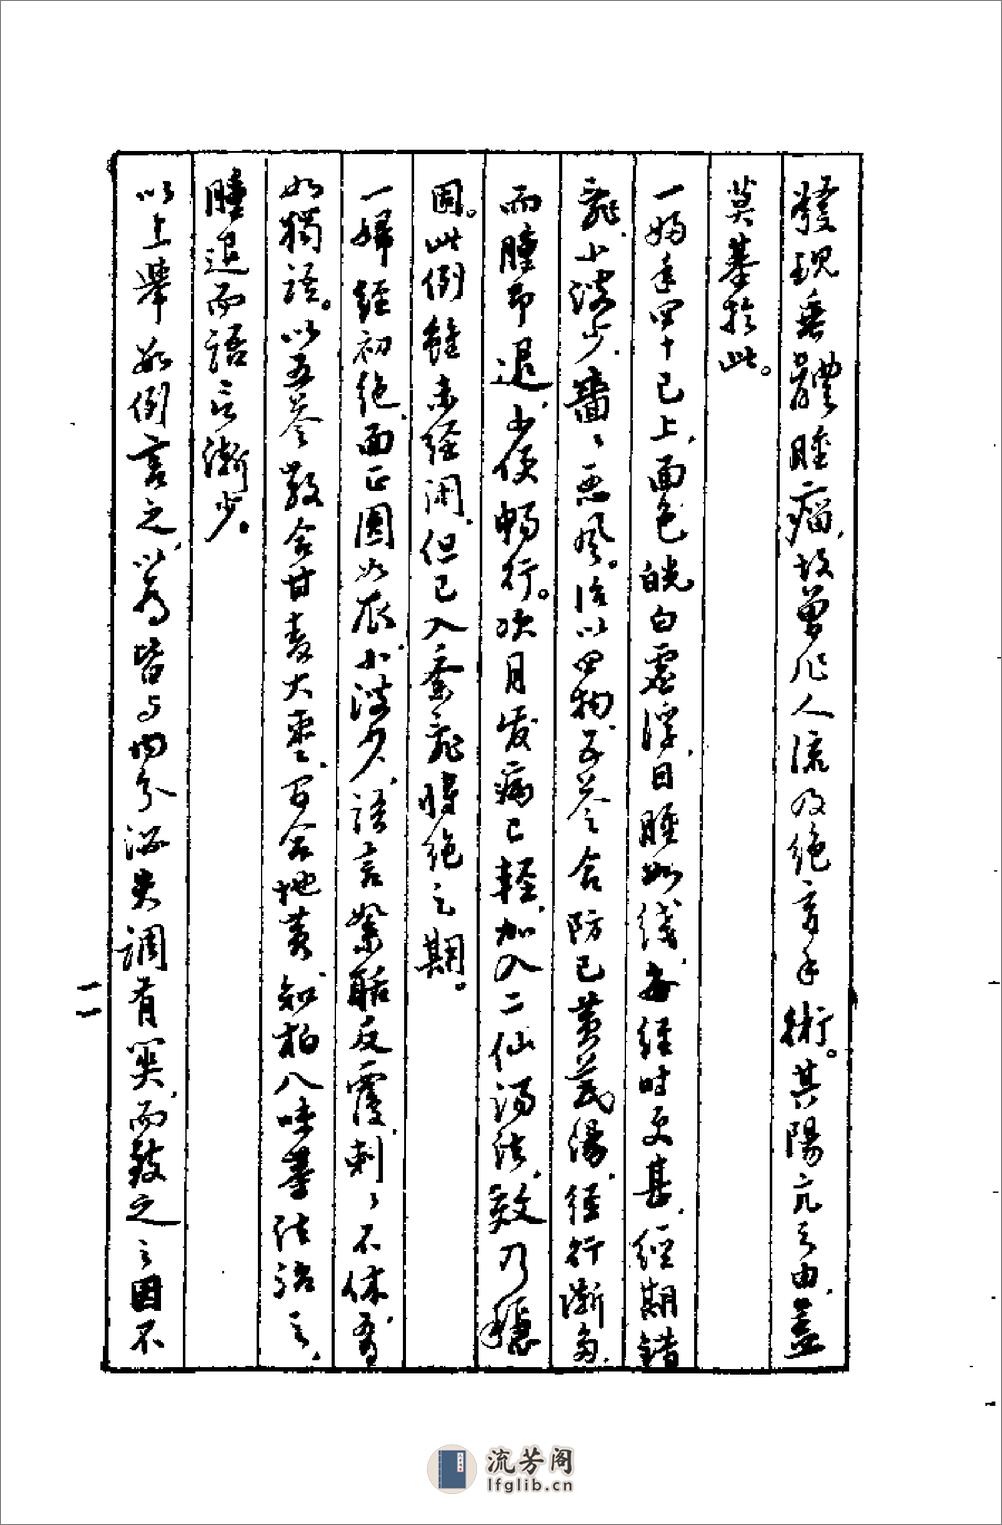 發現垂體腫瘤，故曾作人流及絕育手術。其陽亢之由，蓋
莫基於此。
一婦年四十已上，面色㿠白虛浮，目腫如綫，每經時更甚，經期錯
亂，小溲少，嗇嗇惡風。治以四物、五苓合防己黃芪湯，經行漸多，
而腫即退，小便暢行。次月發病已輕，加入二仙湯法，效乃穩
固。此例雖未經閉，但已入紊亂將絕之期。
一婦經初絕，面正圓如灰，小溲少，語言絮聒反覆，刺刺不休，有
如獨語。以五苓散合甘麥大棗、百合地黃、知柏八味等法治之，
腫退而語言漸少。
以上舉數例言之，以爲皆與內分泌失調有關，而致之之因不
一一
流芳阁
lfglib.cn